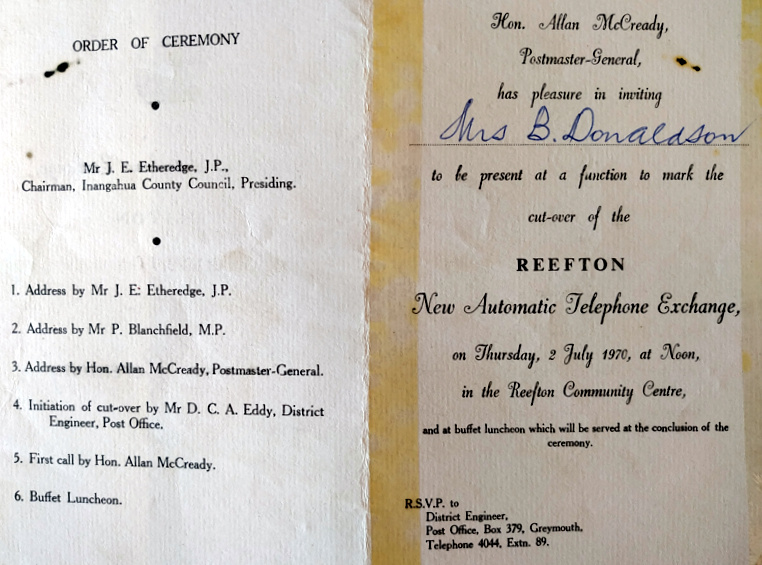 ORDER OF CEREMONY
Mr J. E. Etheredge, J.P.,
Chairman, Inangahua County Council, Presiding.
1. Address by Mr J. E: Etheredge, J.P.
2. Address by Mr P. Blanchfield, M.P.
3. Address by Hon. Allan McCready, Postmaster-General.
4. Initiation of cut-over by Mr D. C. A. Eddy, District
Engineer, Post Office.
5. First call by Hon. Allan McCready.
6. Buffet Luncheon.
Hon. Allan McCready,
Postmaster-General,
has pleasure in inviting
Mrs B. Donaldson
to be present at a function to mark the
cut-over of the
REEFTON
New Automatic Telephone Exchange,
on Thursday, 2 July 1970, at Noon,
in the Reefton Community Centre,
and at buffet luncheon which will be served at the conclusion of the
ceremony.
R.S.V.P. to
District Engineer,
Post Office, Box 379, Greymouth.
Telephone 4044, Extn. 89.